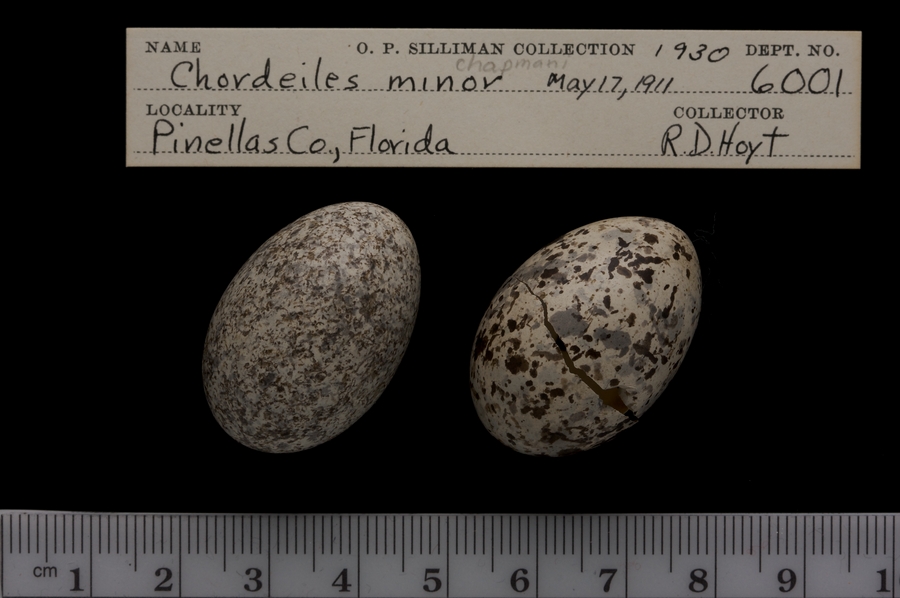 NAME O. P. SILLIMAN COLLECTION 1930 DEPT. NO.
chapmani
Chordeiles minor May 17, 1911 6001
LOCALITY COLLECTOR
Pinellas Co., Florida R.D.Hoyt
cm 1 2 3 4 5 6 7 8 9 1